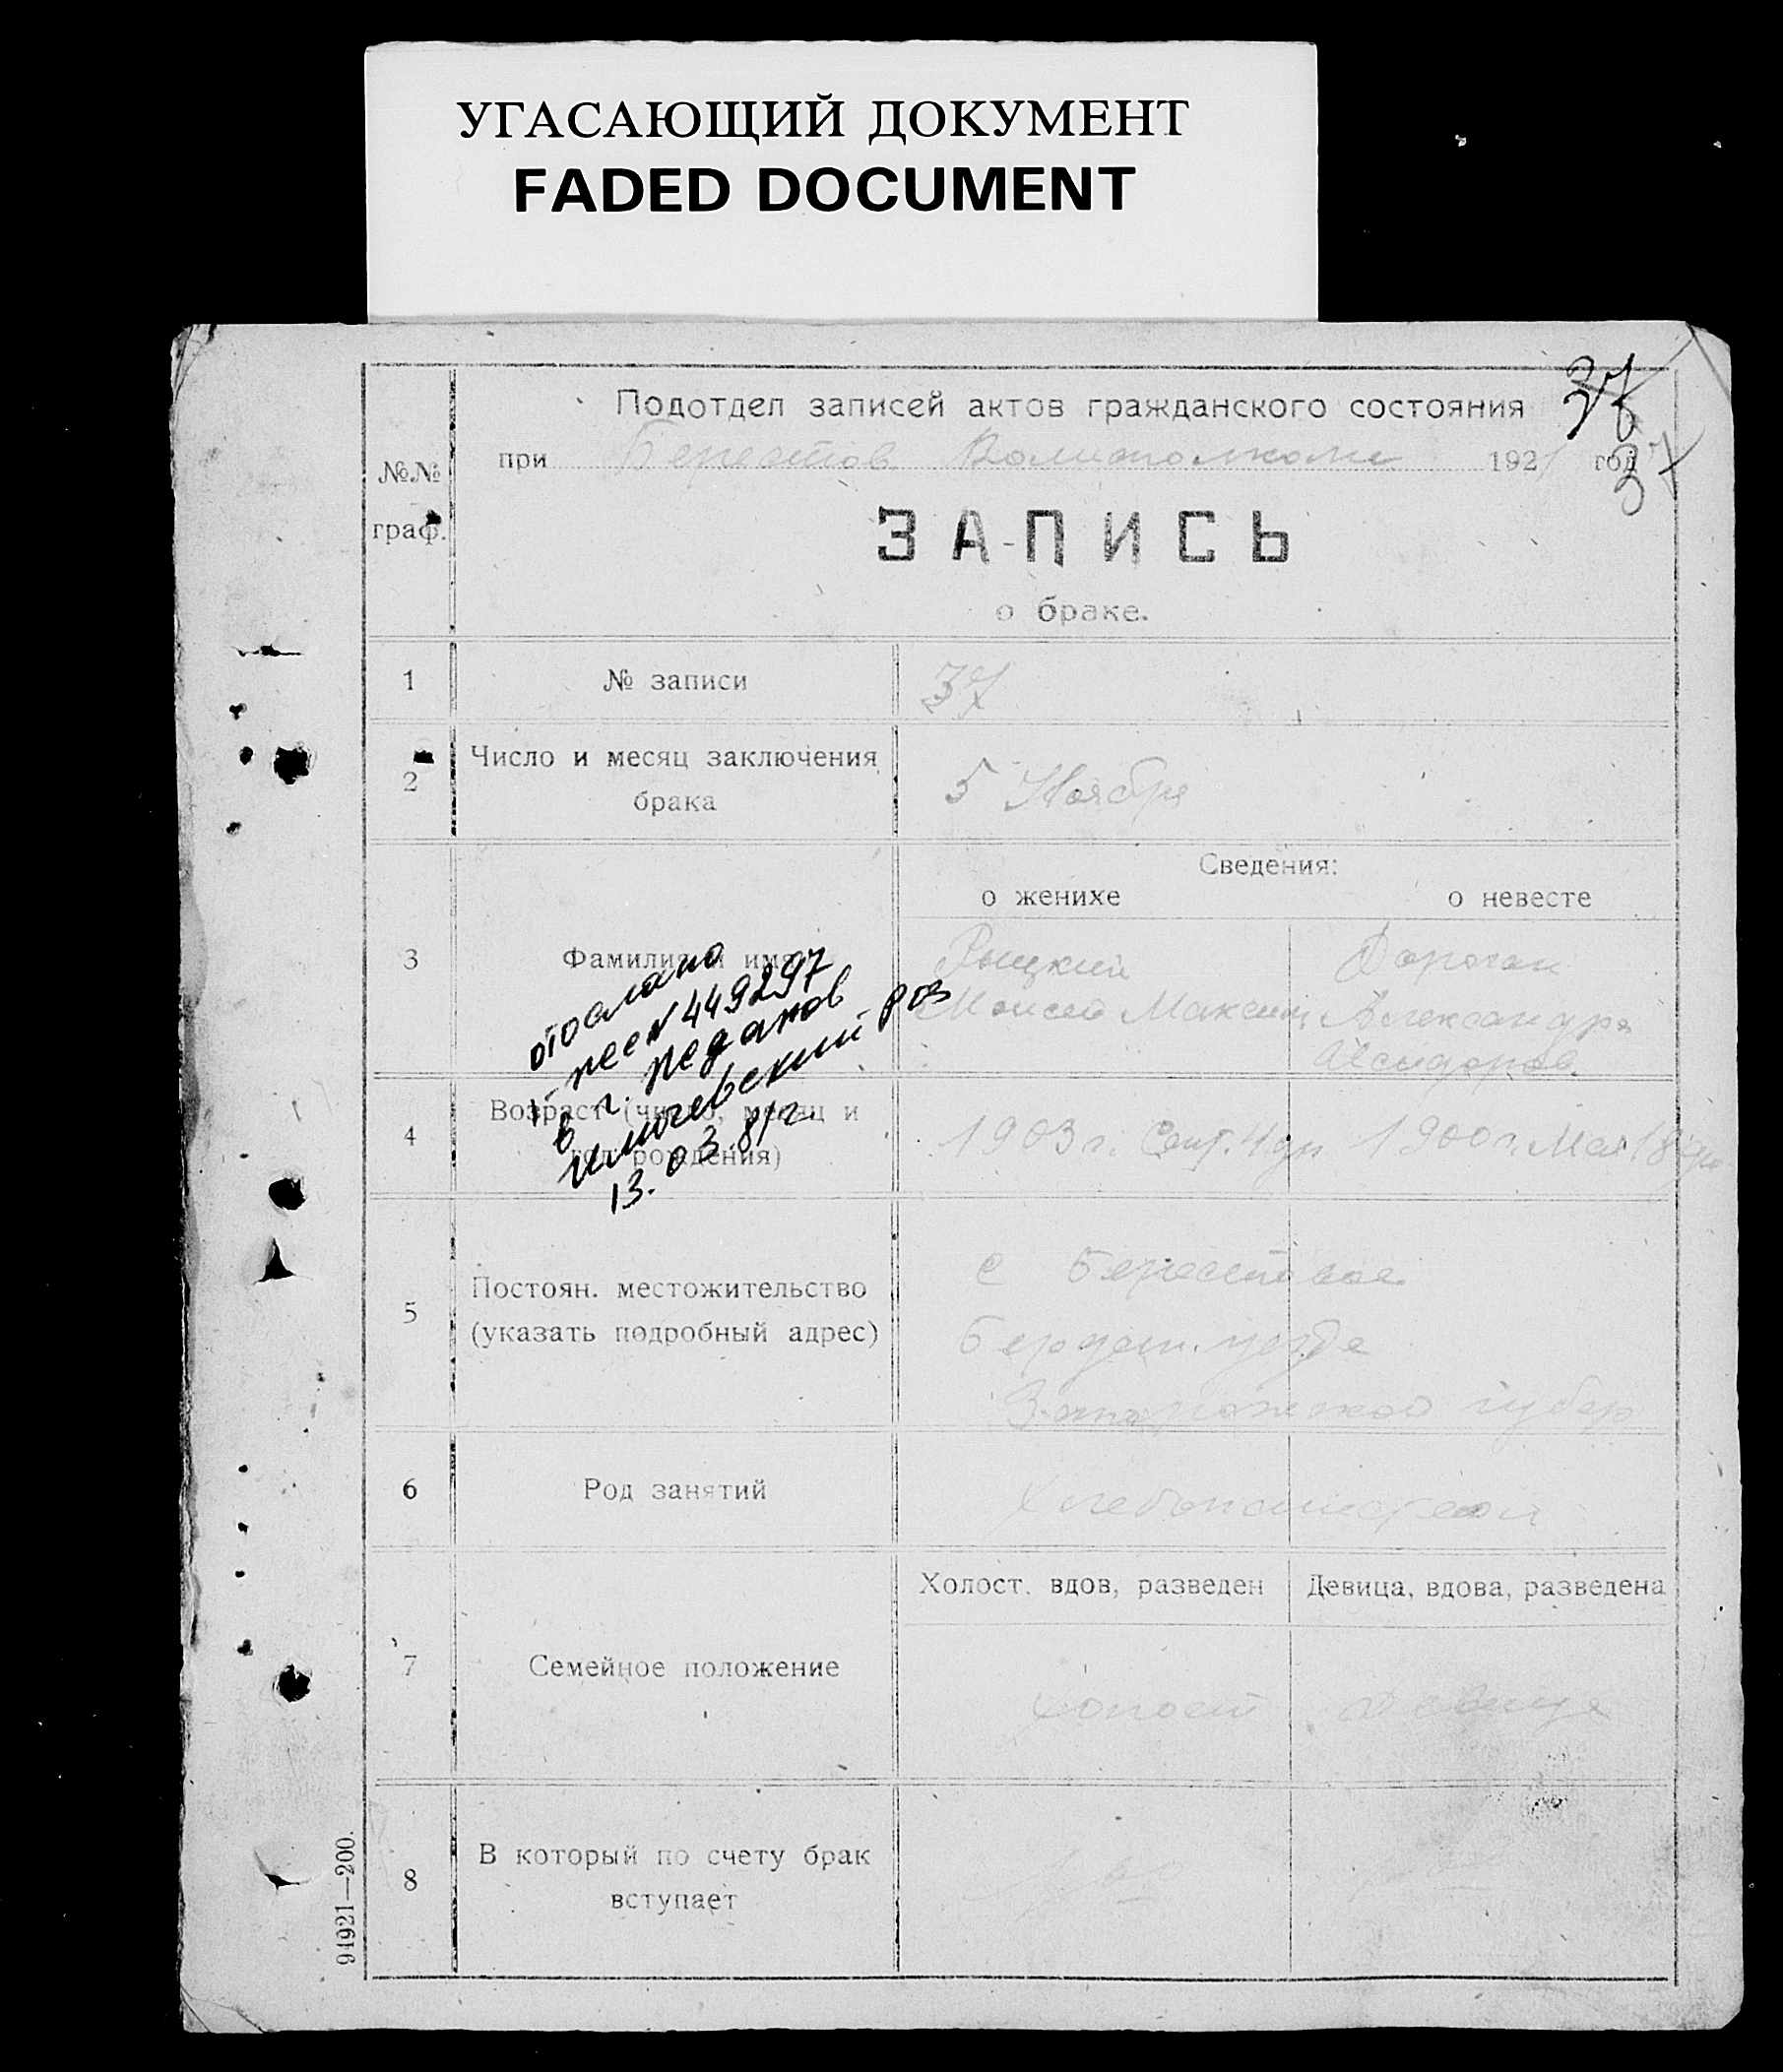 УГАСАЮЩИЙ ДОКУМЕНТ
FADED DOCUMENT
37
37
Подотдел записей актов гражданского состояния
при Берестов Волисполкоме 192 год
№№
граф.
ЗАПИСЬ
о браке.
1 № записи 37
2 Число и месяц заключения
брака
5 Ноября
Сведения:
о женихе о невесте
3 Фамилия и имя
Рыцкий
Моисей Максим
Дороган
Александра
Исидоров.
отослано
449297
в г.
13.03.81г.
4 Возраст (число, месяц и
год рождения)
1903 г. Сент. 4 дн 1900 г. Мая 18 дн
5 Постоян. местожительство
(указать подробный адрес)
с Берестовое
Бердян. уезда
Запорожской губер
6 Род занятий
Хлебопашество
Холост, вдов, разведен Девица, вдова, разведена
7 Семейное положение
холост Девица
8 В который по счету брак
вступает
94921—200.